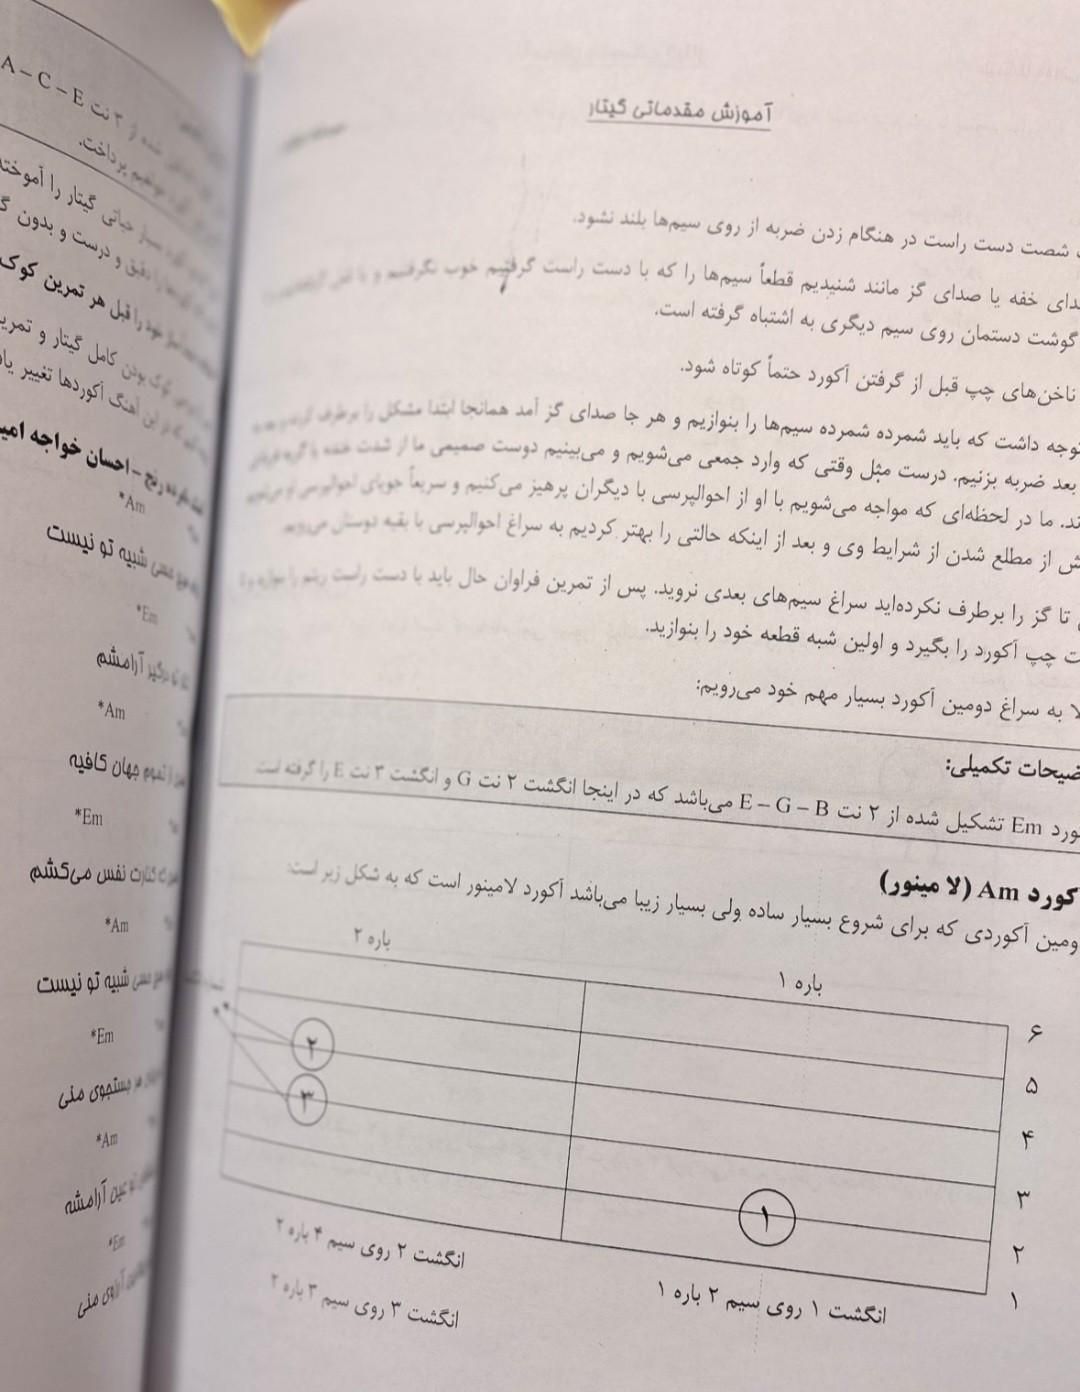 آموزش مقدماتی گیتار
شصت دست راست در هنگام زدن ضربه از روی سیم‌ها بلند نشود.
دای خفه یا صدای گز مانند شنیدیم قطعاً سیم‌ها را که با دست راست گرفتیم خوب نگرفتیم و یا
گوشت دستمان روی سیم دیگری به اشتباه گرفته است.
ناخن‌های چپ قبل از گرفتن آکورد حتماً کوتاه شود.
توجه داشت که باید شمرده شمرده سیم‌ها را بنوازیم و هر جا صدای گز آمد همانجا ابتدا مشکل را برطرف کرده
بعد ضربه بزنیم. درست مثل وقتی که وارد جمعی می‌شویم و می‌بینیم دوست صمیمی ما از شدت خنده یا گریه
ند. ما در لحظه‌ای که مواجه می‌شویم با او از احوالپرسی با دیگران پرهیز می‌کنیم و سریعاً جویای احوالپرسی او می‌شویم
ش از مطلع شدن از شرایط وی و بعد از اینکه حالتی را بهتر کردیم به سراغ احوالپرسی با بقیه دوستان می‌رویم
تا گز را برطرف نکرده‌اید سراغ سیم‌های بعدی نروید. پس از تمرین فراوان حال باید با دست راست ریتم را
ت چپ آکورد را بگیرد و اولین شبه قطعه خود را بنوازید.
لا به سراغ دومین آکورد بسیار مهم خود می‌رویم:
ضیحات تکمیلی:
ورد Em تشکیل شده از ۲ نت E – G – B می‌باشد که در اینجا انگشت ۲ نت G و انگشت ۳ نت E را گرفته است
کورد Am (لا مینور)
ومین آکوردی که برای شروع بسیار ساده ولی بسیار زیبا می‌باشد آکورد لامینور است که به شکل زیر است:
باره ۱
باره ۲
۶
۵
۴
۳
۲
۱
۲
۳
۱
انگشت ۱ روی سیم ۲ باره ۱
انگشت ۲ روی سیم ۴ باره ۲
انگشت ۳ روی سیم ۳ باره ۲
شده از ۳ نت A – C – E
خواهیم پرداخت.
حیاتی گیتار را آموخته
دقیق و درست و بدون گ
خود را قبل هر تمرین کوک
کوک بودن کامل گیتار و تمری
که در این آهنگ آکوردها تغییر یا
رنج – احسان خواجه امی
*Am
شبیه تو نیست
*Em
تو درگیر آرامشم
*Am
از تموم جهان کافیه
*Em
کنارت نفس می‌کشم
*Am
شبیه تو نیست
*Em
جستجوی منی
*Am
تو عین آرامشه
*Em
آرزوی منی